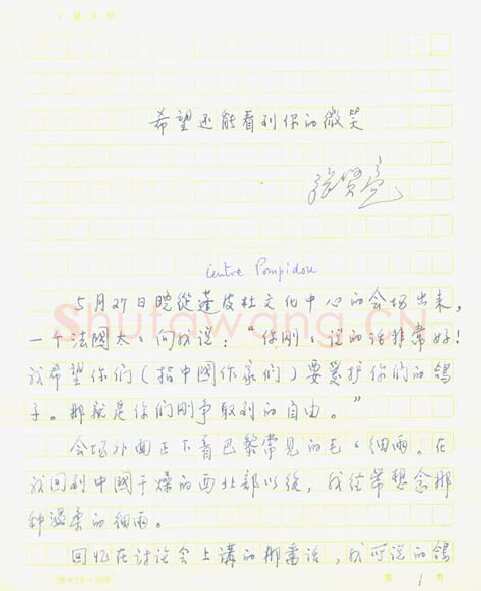 希望还能看到你的微笑
张贤亮
Centre Pompidou
5月27日晚從蓬皮杜文化中心的会场出来，
一个法國太々向我说：“你刚々说的话非常好！
我希望你们（指中國作家们）要爱护你们的鸽
子。那就是你们刚争取到的自由。”
会场外面正下着巴黎常见的毛々细雨。在
我回到中國干燥的西北部以後，我经常想念那
种温柔的细雨。
回忆在讨论会上講的那番话，我所说的鸽
Shufawang.CN
第 1 页